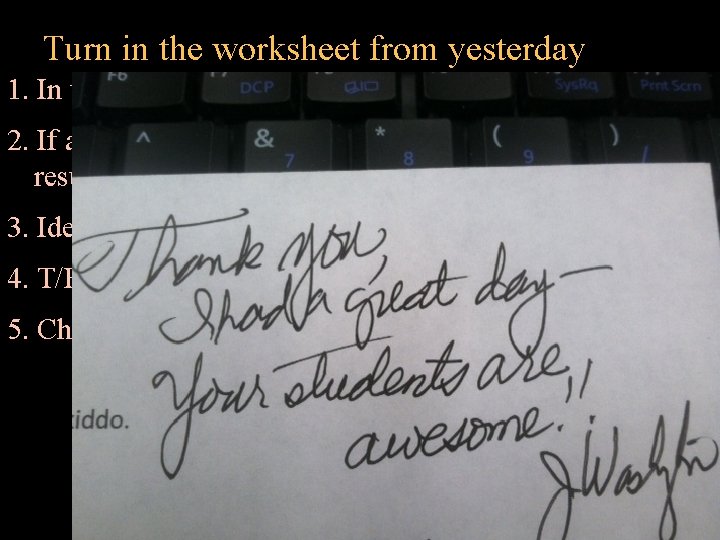 Turn in the worksheet from yesterday
1. In
2. If a
resu
3. Ide
4. T/
5. Ch
F6 DCP SysRq Prnt Scrn
^ & 7 * 8 ( 9 ) /
Thank you,
I had a great day—
Your students are
awesome!!
kiddo.
J Washington